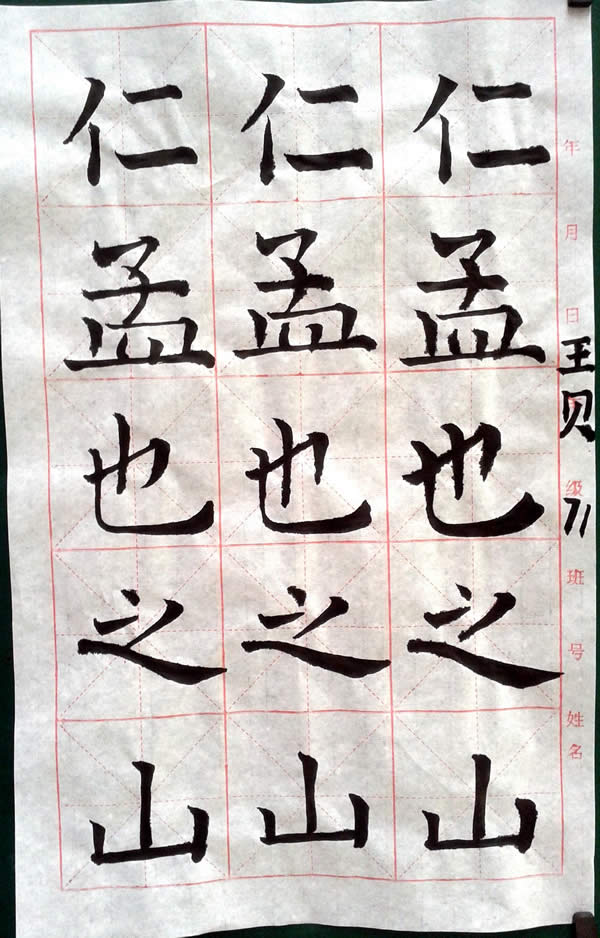 仁孟也之山
仁孟也之山
仁孟也之山
年 月 日 王贝 级 71 班 号 姓名